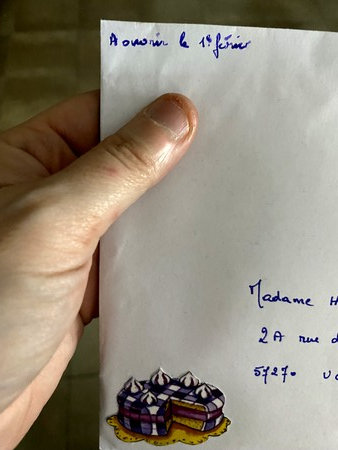 A ouvrir le 1er février
Madame H
2A rue d
57270 U